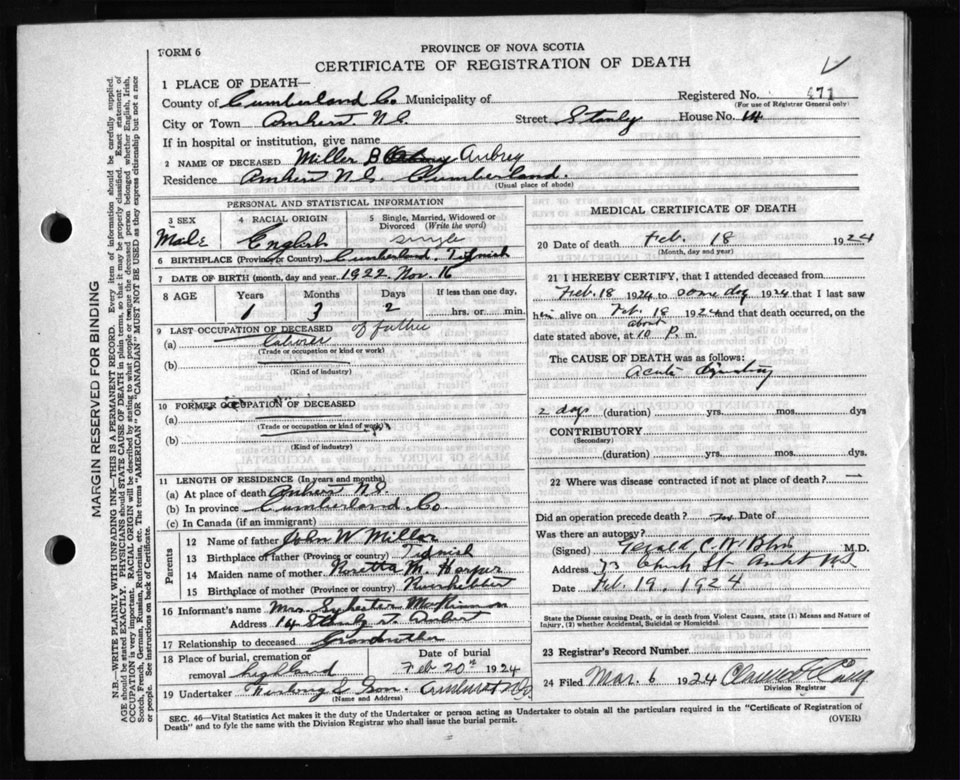 FORM 6
PROVINCE OF NOVA SCOTIA
CERTIFICATE OF REGISTRATION OF DEATH
1 PLACE OF DEATH—
County of Cumberland Co Municipality of
Registered No. 471
(For use of Registrar General only)
City or Town Amherst N.S. Street Stanly House No. 14
If in hospital or institution, give name
2 NAME OF DECEASED Miller B Aubrey
Residence Amherst N.S. Cumberland.
(Usual place of abode)
PERSONAL AND STATISTICAL INFORMATION
3 SEX
Male
4 RACIAL ORIGIN
English
5 Single, Married, Widowed or Divorced (Write the word)
single
6 BIRTHPLACE (Province or Country) Cumberland. Tidnish
7 DATE OF BIRTH (month, day and year) 1922 Nov. 16
8 AGE
Years Months Days If less than one day,
1 3 2 hrs. or min.
9 LAST OCCUPATION OF DECEASED of father
(a) laborer
(Trade or occupation or kind or work)
(b)
(Kind of industry)
10 FORMER OCCUPATION OF DECEASED
(a)
(Trade or occupation or kind of work)
(b)
(Kind of industry)
11 LENGTH OF RESIDENCE (In years and months)
(a) At place of death Amherst N.S.
(b) In province Cumberland Co.
(c) In Canada (if an immigrant)
Parents
12 Name of father John W Miller
13 Birthplace of father (Province or country) Tidnish
14 Maiden name of mother Rosetta M. Harper
15 Birthplace of mother (Province or country)
16 Informant's name Mrs. Sylvester McKinnon
Address 14 Stanly St. Amherst
17 Relationship to deceased Grandmother
18 Place of burial, cremation or removal highland
Date of burial
Feb 20th 1924
19 Undertaker & Son. Amherst N.S.
(Name and Address)
MEDICAL CERTIFICATE OF DEATH
20 Date of death Feb. 18 1924
(Month, day and year)
21 I HEREBY CERTIFY, that I attended deceased from
Feb. 18 1924 to same day 1924 that I last saw
him alive on Feb. 18 1924 and that death occurred, on the
date stated above, at about 10 P. m.
The CAUSE OF DEATH was as follows:
Acute
2 days (duration) yrs. mos. dys
CONTRIBUTORY
(Secondary)
(duration) yrs. mos. dys.
22 Where was disease contracted if not at place of death?
Did an operation precede death? no Date of
Was there an autopsy?
(Signed) Gerald C. W. M.D.
Address 33 Church St. Amherst N.S.
Date Feb. 19, 1924
State the Disease causing Death, or in death from Violent Causes, state (1) Means and Nature of Injury, (2) whether Accidental, Suicidal or Homicidal.
23 Registrar's Record Number
24 Filed Mar. 6 1924
Division Registrar
SEC. 46—Vital Statistics Act makes it the duty of the Undertaker or person acting as Undertaker to obtain all the particulars required in the "Certificate of Registration of
Death" and to fyle the same with the Division Registrar who shall issue the burial permit.
(OVER)
MARGIN RESERVED FOR BINDING
N.B.—WRITE PLAINLY WITH UNFADING INK—THIS IS A PERMANENT RECORD. Every item of information should be carefully supplied.
AGE should be stated EXACTLY. PHYSICIANS should STATE CAUSE OF DEATH in plain terms, so that it may be properly classified. Exact statement of
OCCUPATION is very important. RACIAL ORIGIN will be described by stating to what people or tongue the deceased person belonged whether English, Irish,
Scotch, French, German, Russian, Ruthenian, etc. The terms "AMERICAN" OR "CANADIAN" MUST NOT BE USED as they express citizenship but not a race
or people. See instructions on back of Certificate.